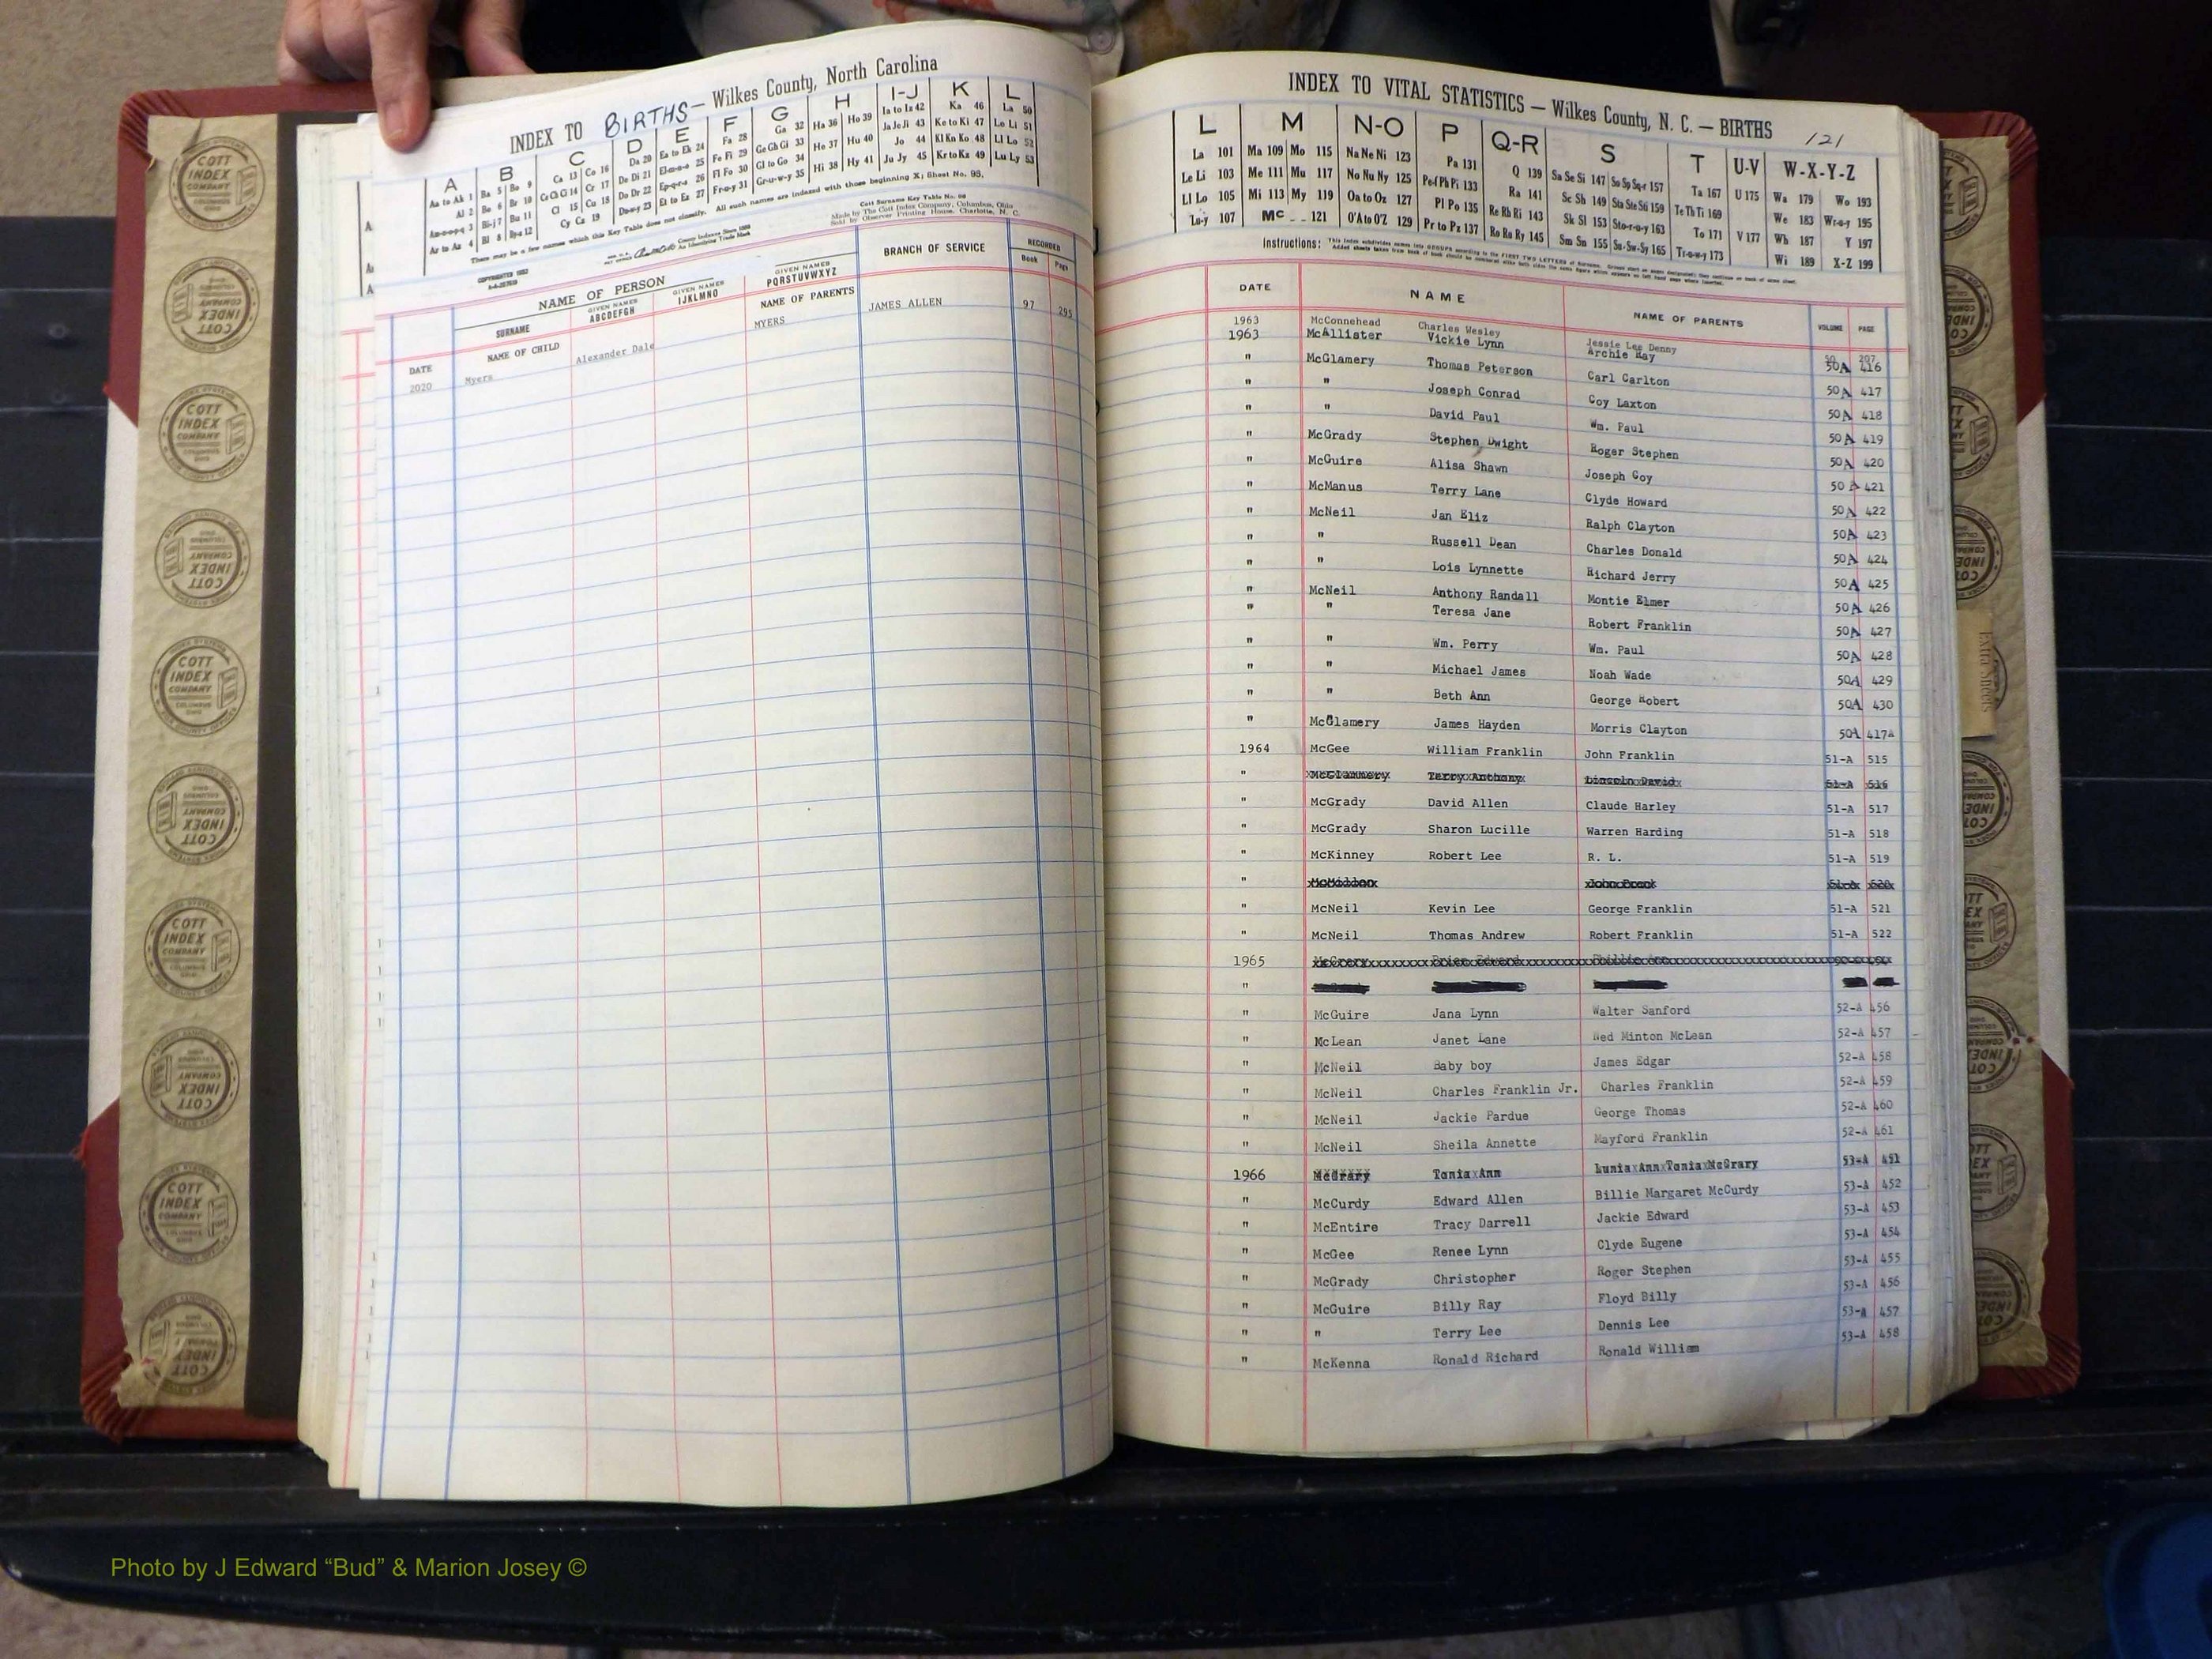 INDEX TO BIRTHS — Wilkes County, North Carolina
A B C D E F G H I-J K L
Aa to Ak 1 Ba 5 Bo 9 Ca 13 Co 16 Da 20 Ea to Ek 24 Fa 28 Ga 32 Ha 36 Ho 39 Ia to Iz 42 Ka 46 La 50
Al 2 Be 6 Br 10 Ce Ci Cl 14 Cr 17 De Di 21 El-m-n-o 25 Fe Fi 29 Ge Gh Gi 33 He 37 Hu 40 Ja Je Ji 43 Ke to Ki 47 Le Li 51
Am-n-o-p-q 3 Bi-j 7 Bu 11 Cl 15 Cu 18 Do Dr 22 Ep-q-r-s 26 Fl Fo 30 Gl to Go 34 Hi 38 Hy 41 Jo 44 Kl Kn Ko 48 Ll Lo 52
Ar to Az 4 Bl 8 By-z 12 Cy Cz 19 Du-w-y 23 Et to Ez 27 Fr-u-y 31 Gr-u-w-y 35 Ju Jy 45 Kr to Kz 49 Lu Ly 53
There may be a few names which this Key Table does not classify. All such names are indexed with those beginning X; Sheet No. 98.
Made by The Cott Index Company, Columbus, Ohio
Sold by Observer Printing House, Charlotte, N. C.
NAME OF PERSON BRANCH OF SERVICE RECORDED
SURNAME GIVEN NAMES ABCDEFGH GIVEN NAMES IJKLMNO GIVEN NAMES PQRSTUVWXYZ Book Page
DATE NAME OF CHILD NAME OF PARENTS
2020 Myers Alexander Dale MYERS JAMES ALLEN 97 295
INDEX TO VITAL STATISTICS — Wilkes County, N. C. — BIRTHS
121
L M N-O P Q-R S T U-V W-X-Y-Z
La 101 Ma 109 Mo 115 Na Ne Ni 123 Pa 131 Q 139 Sa Se Si 147 So Sp Sq-r 157 Ta 167 U 175 Wa 179 Wo 193
Le Li 103 Me 111 Mu 117 No Nu Ny 125 Pe-f Ph Pi 133 Ra 141 Sc Sh 149 Sta Ste Sti 159 Te Th Ti 169 We 183 Wr-u-y 195
Ll Lo 105 Mi 113 My 119 Oa to Oz 127 Pl Po 135 Re Rh Ri 143 Sk Sl 153 Sto-r-u-y 163 To 171 V 177 Wh 187 Y 197
Lu-y 107 Mc 121 O'A to O'Z 129 Pr to Pz 137 Ro Ru Ry 145 Sm Sn 155 Su-Sw-Sy 165 Tr-u-w-y 173 Wi 189 X-Z 199
Instructions:
DATE NAME NAME OF PARENTS VOLUME PAGE
1963 McConnehead Charles Wesley Jessie Lee Denny 50 207
1963 McAllister Vickie Lynn Archie Ray 50A 416
" McGlamery Thomas Peterson Carl Carlton 50A 417
" " Joseph Conrad Coy Laxton 50A 418
" " David Paul Wm. Paul 50A 419
" McGrady Stephen Dwight Roger Stephen 50A 420
" McGuire Alisa Shawn Joseph Coy 50A 421
" McManus Terry Lane Clyde Howard 50A 422
" McNeil Jan Eliz Ralph Clayton 50A 423
" " Russell Dean Charles Donald 50A 424
" " Lois Lynnette Richard Jerry 50A 425
" McNeil Anthony Randall Montie Elmer 50A 426
" " Teresa Jane Robert Franklin 50A 427
" " Wm. Perry Wm. Paul 50A 428
" " Michael James Noah Wade 50A 429
" " Beth Ann George Robert 50A 430
" McGlamery James Hayden Morris Clayton 50A 417A
1964 McGee William Franklin John Franklin 51-A 515
" McGlammery Terry Anthony Lincoln David 51-A 516
" McGrady David Allen Claude Harley 51-A 517
" McGrady Sharon Lucille Warren Harding 51-A 518
" McKinney Robert Lee R. L. 51-A 519
"
" McNeil Kevin Lee George Franklin 51-A 521
" McNeil Thomas Andrew Robert Franklin 51-A 522
1965
"
" McGuire Jana Lynn Walter Sanford 52-A 456
" McLean Janet Lane Ned Minton McLean 52-A 457
" McNeil Baby boy James Edgar 52-A 458
" McNeil Charles Franklin Jr. Charles Franklin 52-A 459
" McNeil Jackie Pardue George Thomas 52-A 460
" McNeil Sheila Annette Mayford Franklin 52-A 461
1966 McGrary Tonia Ann 53-A 451
" McCurdy Edward Allen Billie Margaret McCurdy 53-A 452
" McEntire Tracy Darrell Jackie Edward 53-A 453
" McGee Renee Lynn Clyde Eugene 53-A 454
" McGrady Christopher Roger Stephen 53-A 455
" McGuire Billy Ray Floyd Billy 53-A 456
" " Terry Lee Dennis Lee 53-A 457
" McKenna Ronald Richard Ronald William 53-A 458
Extra Sheets
COTT INDEX COMPANY COLUMBUS OHIO
Photo by J Edward “Bud” & Marion Josey ©